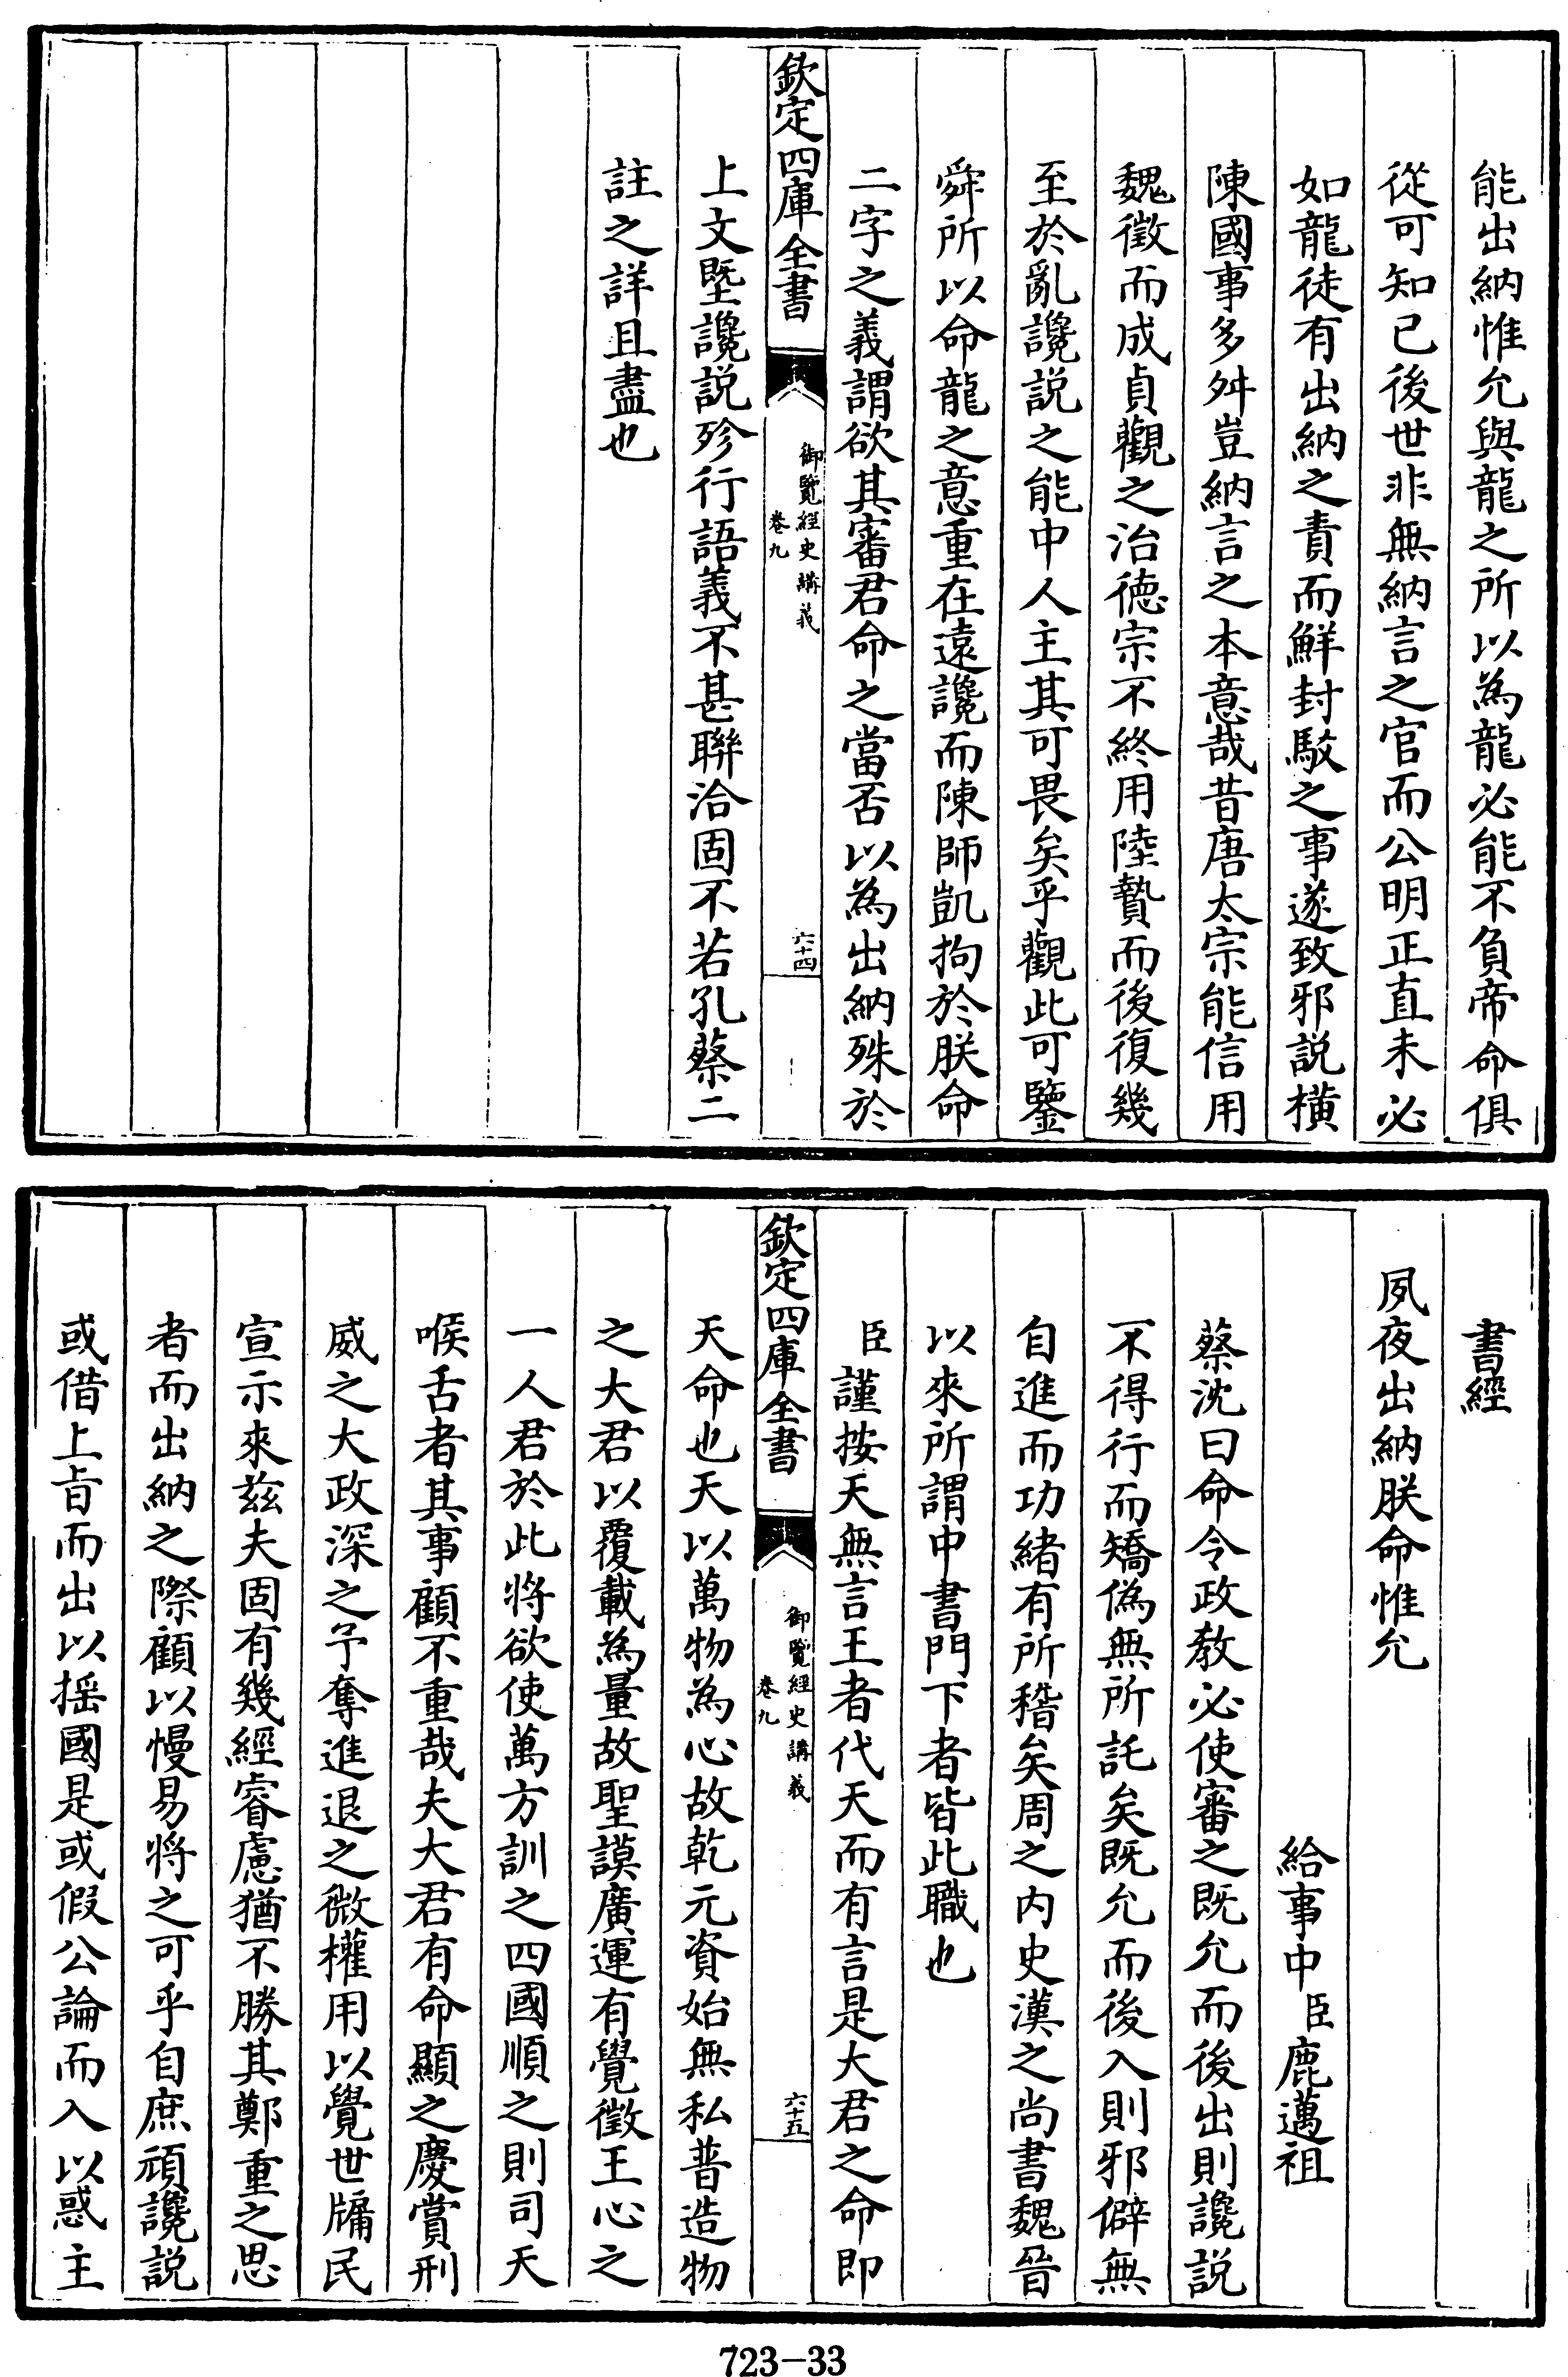 能出納惟允與龍之所以為龍必能不負帝命俱
從可知已後世非無納言之官而公明正直未必
如龍徒有出納之責而鮮封駮之事遂致邪説橫
陳國事多舛豈納言之本意哉昔唐太宗能信用
魏徵而成貞觀之治德宗不終用陸贄而後復幾
至於亂讒説之能中人主其可畏矣乎觀此可鑒
舜所以命龍之意重在遠讒而陳師凱拘於朕命
二字之義謂欲其審君命之當否以為出納殊於
欽定四庫全書
御覽經史講義
卷九
六十四
上文堲讒説殄行語義不甚聯洽固不若孔蔡二
註之詳且盡也
書經
夙夜出納朕命惟允
給事中臣鹿邁祖
蔡沈曰命令政教必使審之既允而後出則讒説
不得行而矯偽無所託矣既允而後入則邪僻無
自進而功緒有所稽矣周之内史漢之尚書魏晉
以來所謂中書門下者皆此職也
臣謹按天無言王者代天而有言是大君之命即
欽定四庫全書
御覽經史講義
卷九
六十五
天命也天以萬物為心故乾元資始無私普造物
之大君以覆載為量故聖謨廣運有覺徵王心之
一人君於此將欲使萬方訓之四國順之則司天
喉舌者其事顧不重哉夫大君有命顯之慶賞刑
威之大政深之予奪進退之微權用以覺世牖民
宣示來兹夫固有幾經睿慮猶不勝其鄭重之思
者而出納之際顧以慢易將之可乎自庶頑讒説
或借上㫖而出以揺國是或假公論而入以惑主
723-33